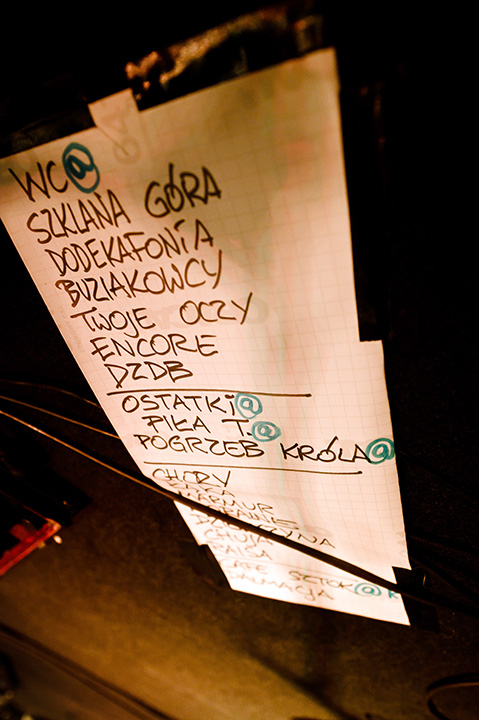 WC @
SZKLANA GÓRA
DODEKAFONIA
BUZIAKOWCY
TWOJE OCZY
ENCORE
DZDB
OSTATKI @
PIŁA T. @
POGRZEB KRÓLA @
CHORY
MARMUR
CHUJA
SZTOK @ K
DALMACJA